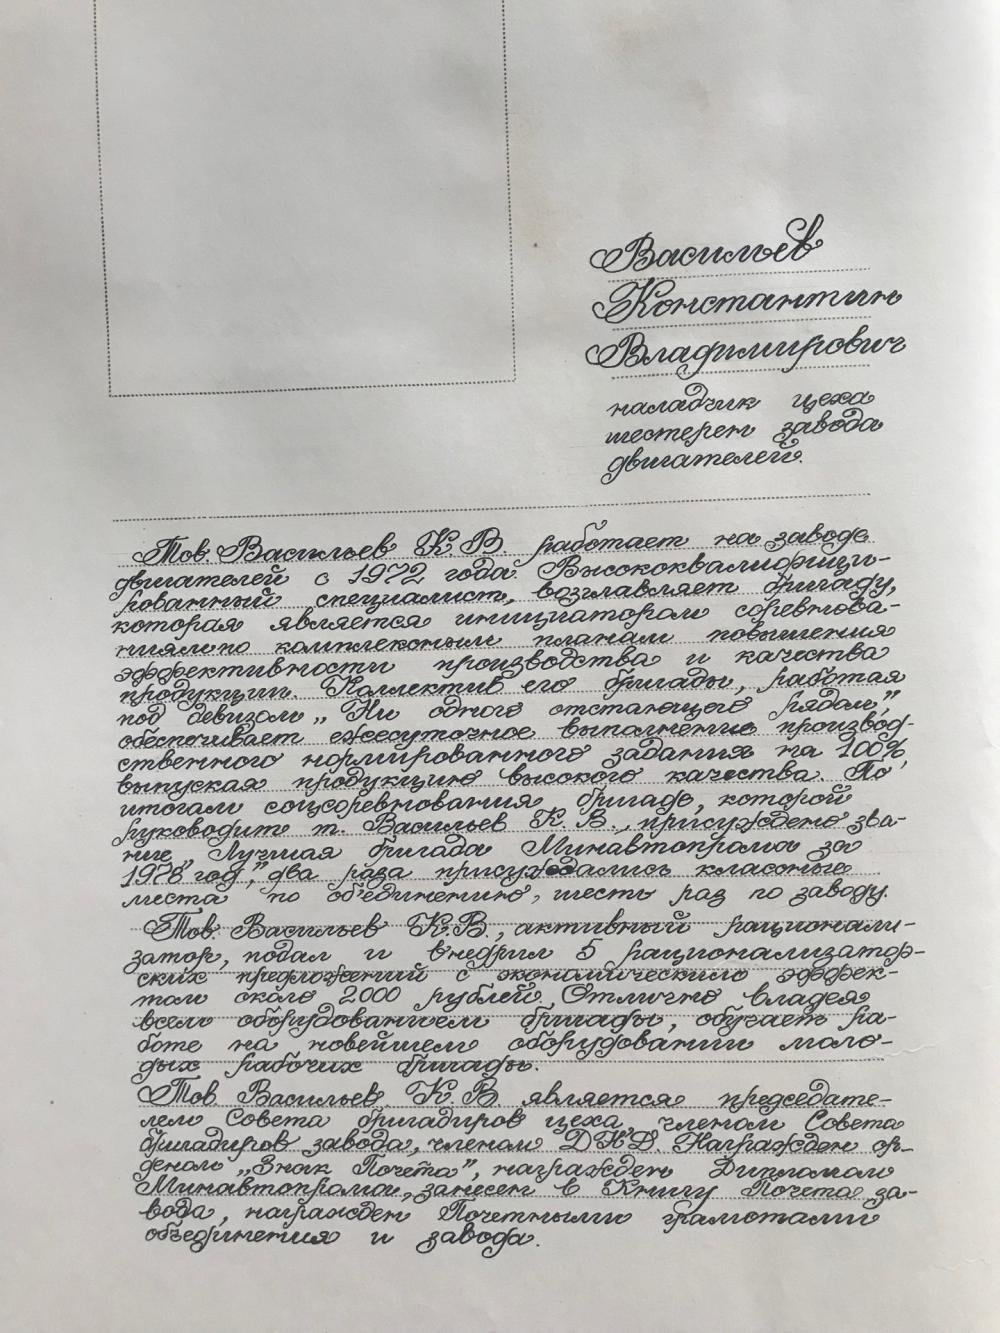 Васильев
Константин
Владимирович
наладчик цеха
шестерен завода
двигателей.
Тов. Васильев К. В. работает на заводе
двигателей с 1972 года. Высококвалифици-
рованный специалист, возглавляет бригаду,
которая является инициатором соревнова-
ниям по комплексным планам повышения
эффективности производства и качества
продукции. Коллектив его бригады, работая
под девизом „Ни одного отстающего рядом",
обеспечивает ежесуточное выполнение производ-
ственного нормированного задания на 100%,
выпуская продукцию высокого качества. По
итогам соцсоревнования бригаде, которой
руководит т. Васильев К. В., присуждено зва-
ние „Лучшая бригада Минавтопрома за
1978 год", два раза присуждались классные
места по объединению, шесть раз по заводу.
Тов. Васильев К.В., активный рационали-
затор, подал и внедрил 5 рационализатор-
ских предложений с экономическим эффек-
том около 2000 рублей. Отлично владея
всем оборудованием бригады, обучает ра-
боте на новейшем оборудовании моло-
дых рабочих бригады.
Тов. Васильев К. В. является председате-
лем Совета бригадиров цеха, членом Совета
бригадиров завода, членом ДНД. Награжден ор-
деном „Знак Почета", награжден Дипломом
Минавтопрома, занесен в Книгу Почета за-
вода, награжден Почетными грамотами
объединения и завода.